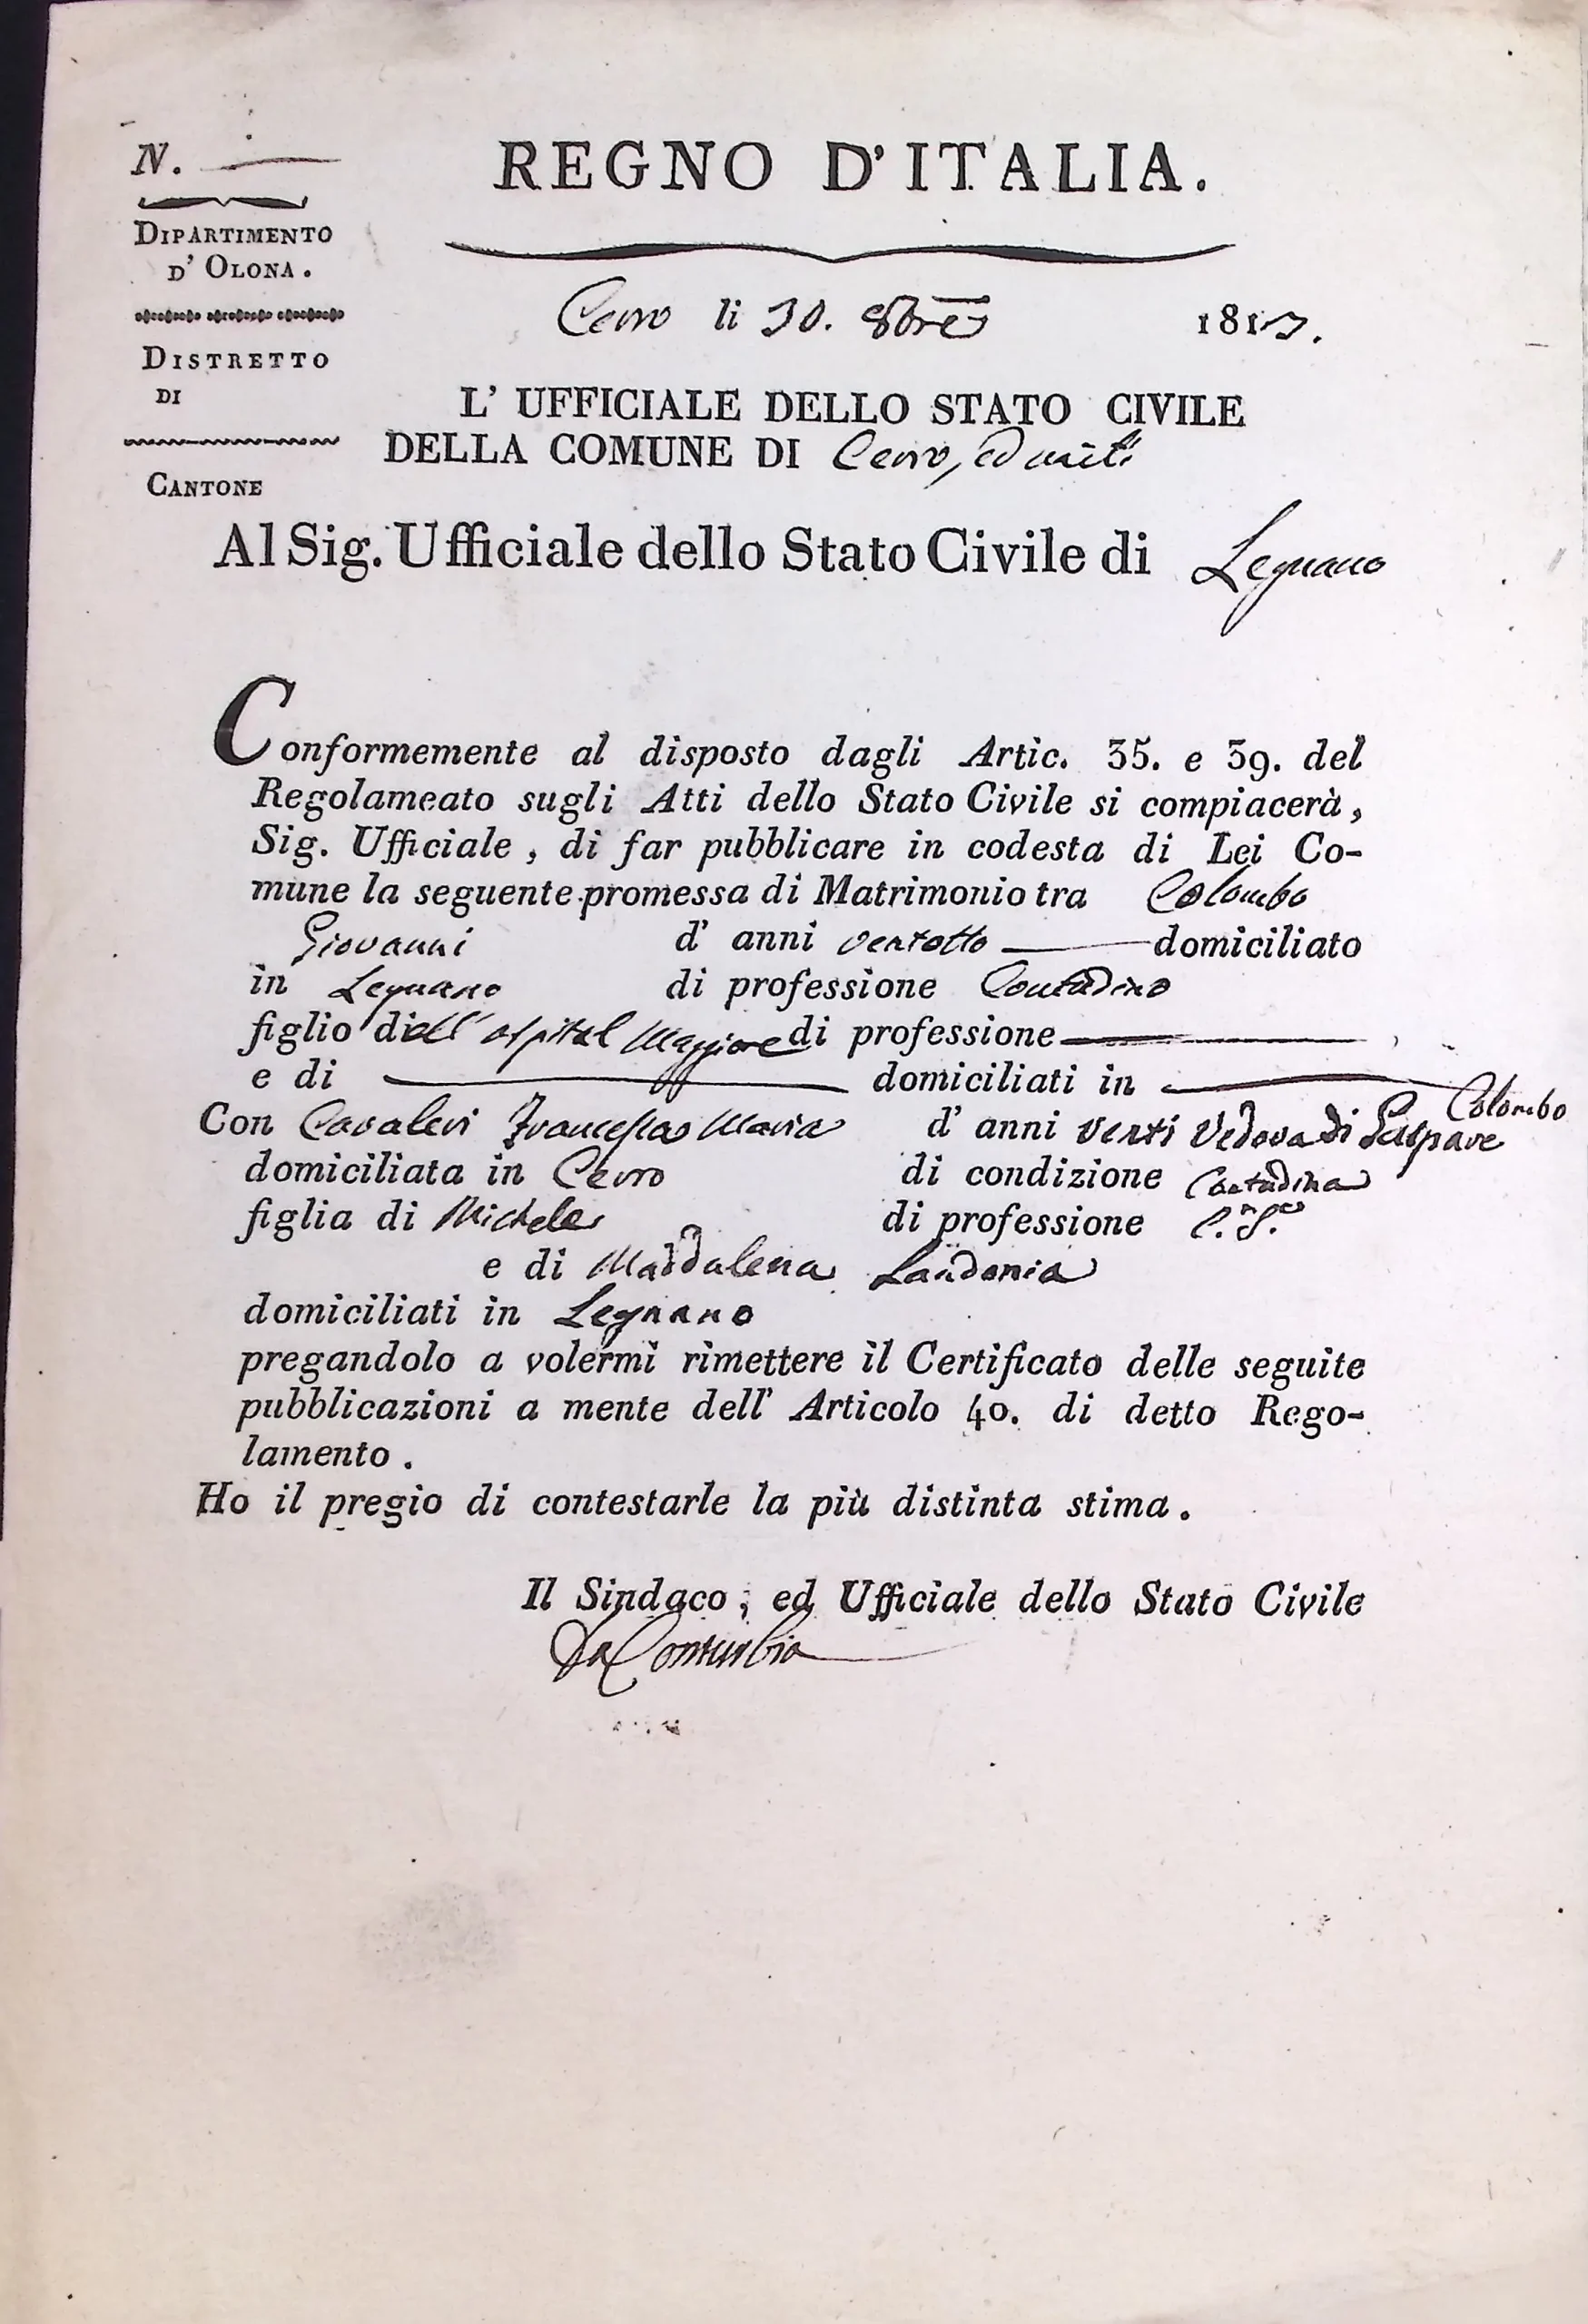 N.
DIPARTIMENTO
D' OLONA.
DISTRETTO
DI
CANTONE
REGNO D'ITALIA.
Cerro li 30. 8bre 1813.
L' UFFICIALE DELLO STATO CIVILE
DELLA COMUNE DI Cerro, ed uniti
Al Sig. Ufficiale dello Stato Civile di Legnano
Conformemente al disposto dagli Artic. 35. e 39. del
Regolameato sugli Atti dello Stato Civile si compiacerà,
Sig. Ufficiale, di far pubblicare in codesta di Lei Co-
mune la seguente promessa di Matrimonio tra Colombo
Giovanni d' anni ventotto domiciliato
in Legnano di professione Contadino
figlio dell' ospital Maggiore di professione
e di domiciliati in
Colombo
Con Cavaleri Francesca Maria d' anni venti Vedova di Gaspare
domiciliata in Cerro di condizione Contadina
figlia di Michele di professione C.n S.e
e di Maddalena Landonia
domiciliati in Legnano
pregandolo a volermi rimettere il Certificato delle seguite
pubblicazioni a mente dell' Articolo 40. di detto Rego-
lamento.
Ho il pregio di contestarle la più distinta stima.
Il Sindaco, ed Ufficiale dello Stato Civile
Conturbia